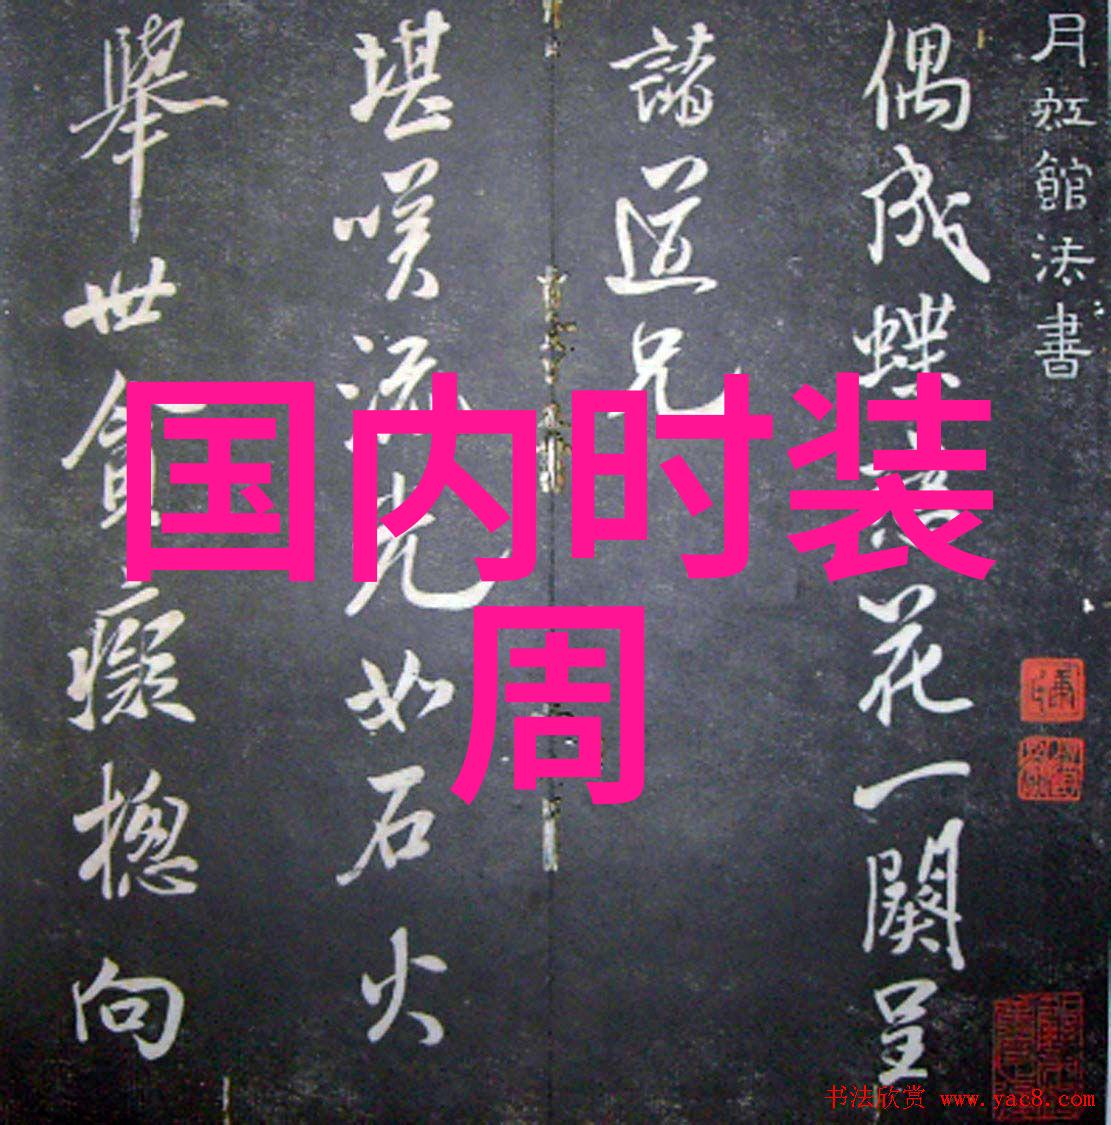 月虹館法書
偶成蝶戀花一闋呈
諸道兄
堪嘆流光如石火
舉世貪癡揔向
国内时装
周
书法欣赏 www.yac8.com